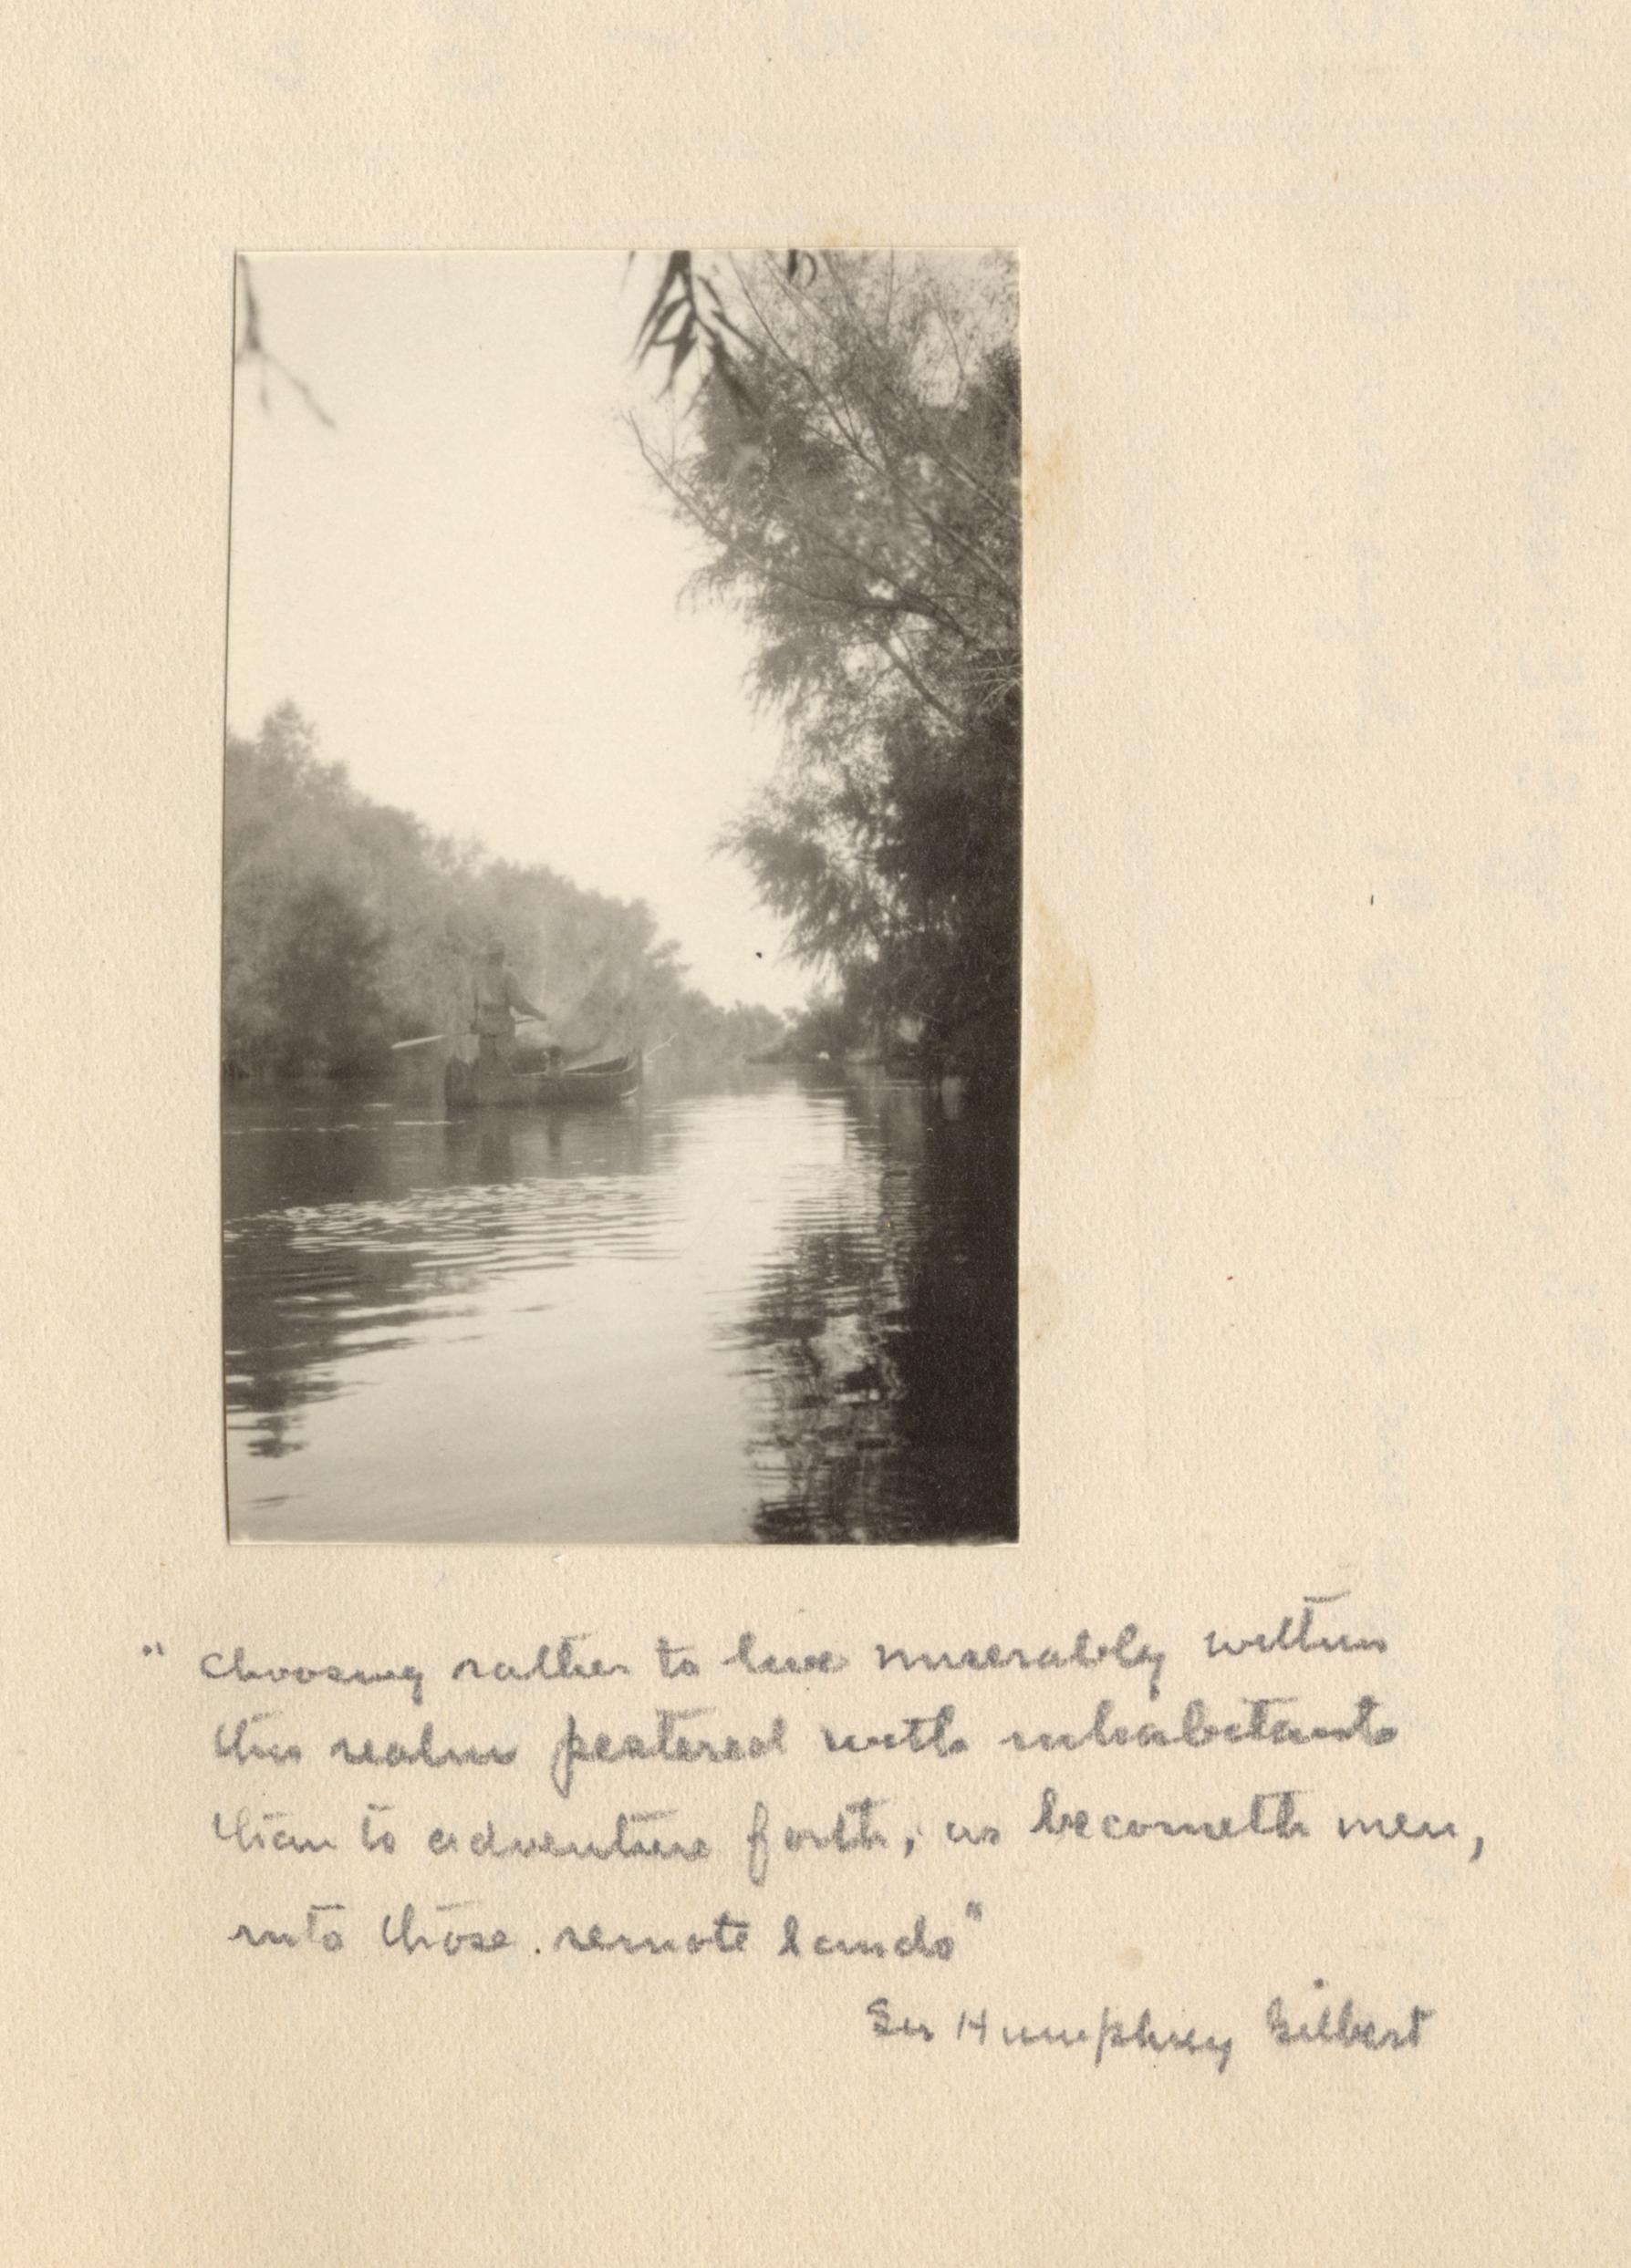 " choosing rather to live miserably within
this realm pestered with inhabitants
than to adventure forth, as becometh men,
into those remote lands"
Sir Humphrey Gilbert